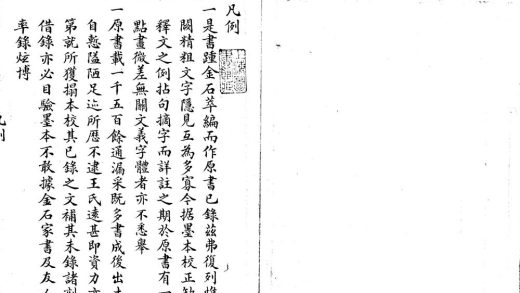 凡例
一是書踵金石萃編而作原書已錄茲弗復列惟
闕精粗文字隱見互為多寡今据墨本校正缺
釋文之例拈句摘字而詳註之期於原書有一
點畫微差無關文義字體者亦不悉舉
一原書載一千五百餘通漏采既多書成後出土
自慙隘陋足迹所歷不逮王氏遠甚即資力亦
第就所獲搨本校其已錄之文補其未錄諸刻
借錄亦必目驗墨本不敢據金石家書及友人
率錄炫博
凡例